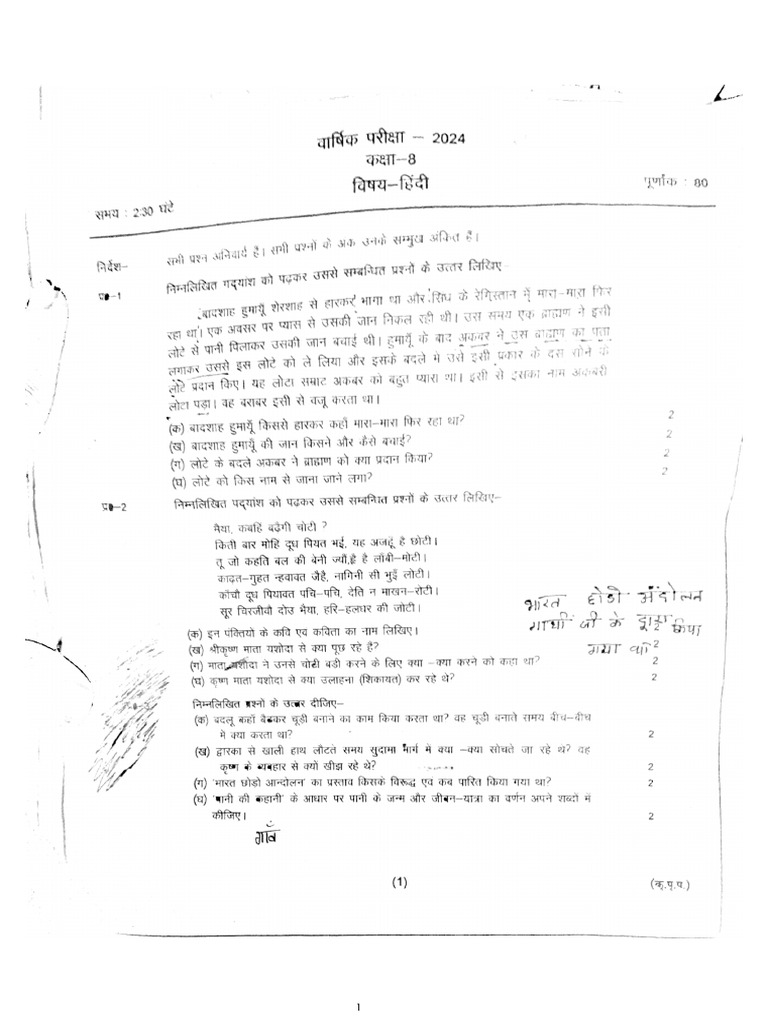 वार्षिक परीक्षा – 2024
कक्षा–8
विषय–हिंदी
पूर्णांक : 80
समय : 2:30 घंटे
निर्देश– सभी प्रश्न अनिवार्य है। सभी प्रश्नों के अंक उनके सम्मुख अंकित है।
प्र०–1 निम्नलिखित गद्यांश को पढ़कर उससे सम्बन्धित प्रश्नों के उत्तर लिखिए–
बादशाह हुमायूँ शेरशाह से हारकर भागा था और सिंध के रेगिस्तान में मारा–मारा फिर
रहा था। एक अवसर पर प्यास से उसकी जान निकल रही थी। उस समय एक ब्राह्मण ने इसी
लोटे से पानी पिलाकर उसकी जान बचाई थी। हुमायूँ के बाद अकबर ने उस ब्राह्मण का पता
लगाकर उससे इस लोटे को ले लिया और इसके बदले में उसे इसी प्रकार के दस सोने के
लोटे प्रदान किए। यह लोटा सम्राट अकबर को बहुत प्यारा था। इसी से इसका नाम अकबरी
लोटा पड़ा। वह बराबर इसी से वजू करता था।
(क) बादशाह हुमायूँ किससे हारकर कहाँ मारा–मारा फिर रहा था? 2
(ख) बादशाह हुमायूँ की जान किसने और कैसे बचाई? 2
(ग) लोटे के बदले अकबर ने ब्राह्मण को क्या प्रदान किया? 2
(घ) लोटे को किस नाम से जाना जाने लगा? 2
प्र०–2 निम्नलिखित पद्यांश को पढ़कर उससे सम्बन्धित प्रश्नों के उत्तर लिखिए–
मैया, कबहिं बढ़ैगी चोटी ?
किती बार मोहि दूध पियत भई, यह अजहूँ है छोटी।
तू जो कहति बल की बेनी ज्यौं, है है लाँबी–मोटी।
काढ़त–गुहत न्हवावत जैहै, नागिनी सी भुइँ लोटी।
काँचौ दूध पियावत पचि–पचि, देति न माखन–रोटी।
सूर चिरजीवौ दोउ भैया, हरि–हलधर की जोटी।
भारत छोडो अंदोलन
गाधीं जी के द्वारा किया
गया था
(क) इन पंक्तियो के कवि एव कविता का नाम लिखिए। 2
(ख) श्रीकृष्ण माता यशोदा से क्या पूछ रहे है? 2
(ग) माता यशोदा ने उनसे चोटी बड़ी करने के लिए क्या –क्या करने को कहा था? 2
(घ) कृष्ण माता यशोदा से क्या उलाहना (शिकायत) कर रहे थे? 2
निम्नलिखित प्रश्नो के उत्तर दीजिए–
(क) बदलू कहाँ बैठकर चूड़ी बनाने का काम किया करता था? वह चूडी बनाते समय बीच–बीच
मे क्या करता था? 2
(ख) द्वारका से खाली हाथ लौटते समय सुदामा मार्ग मे क्या –क्या सोचते जा रहे थे? वह
कृष्ण के व्यवहार से क्यों खीझ रहे थे? 2
(ग) 'भारत छोडो आन्दोलन' का प्रस्ताव किसके विरूद्ध एव कब पारित किया गया था? 2
(घ) 'पानी की कहानी' के आधार पर पानी के जन्म और जीवन–यात्रा का वर्णन अपने शब्दों में
कीजिए। 2
गाँव
(1)
(कृ.पृ.प.)
1